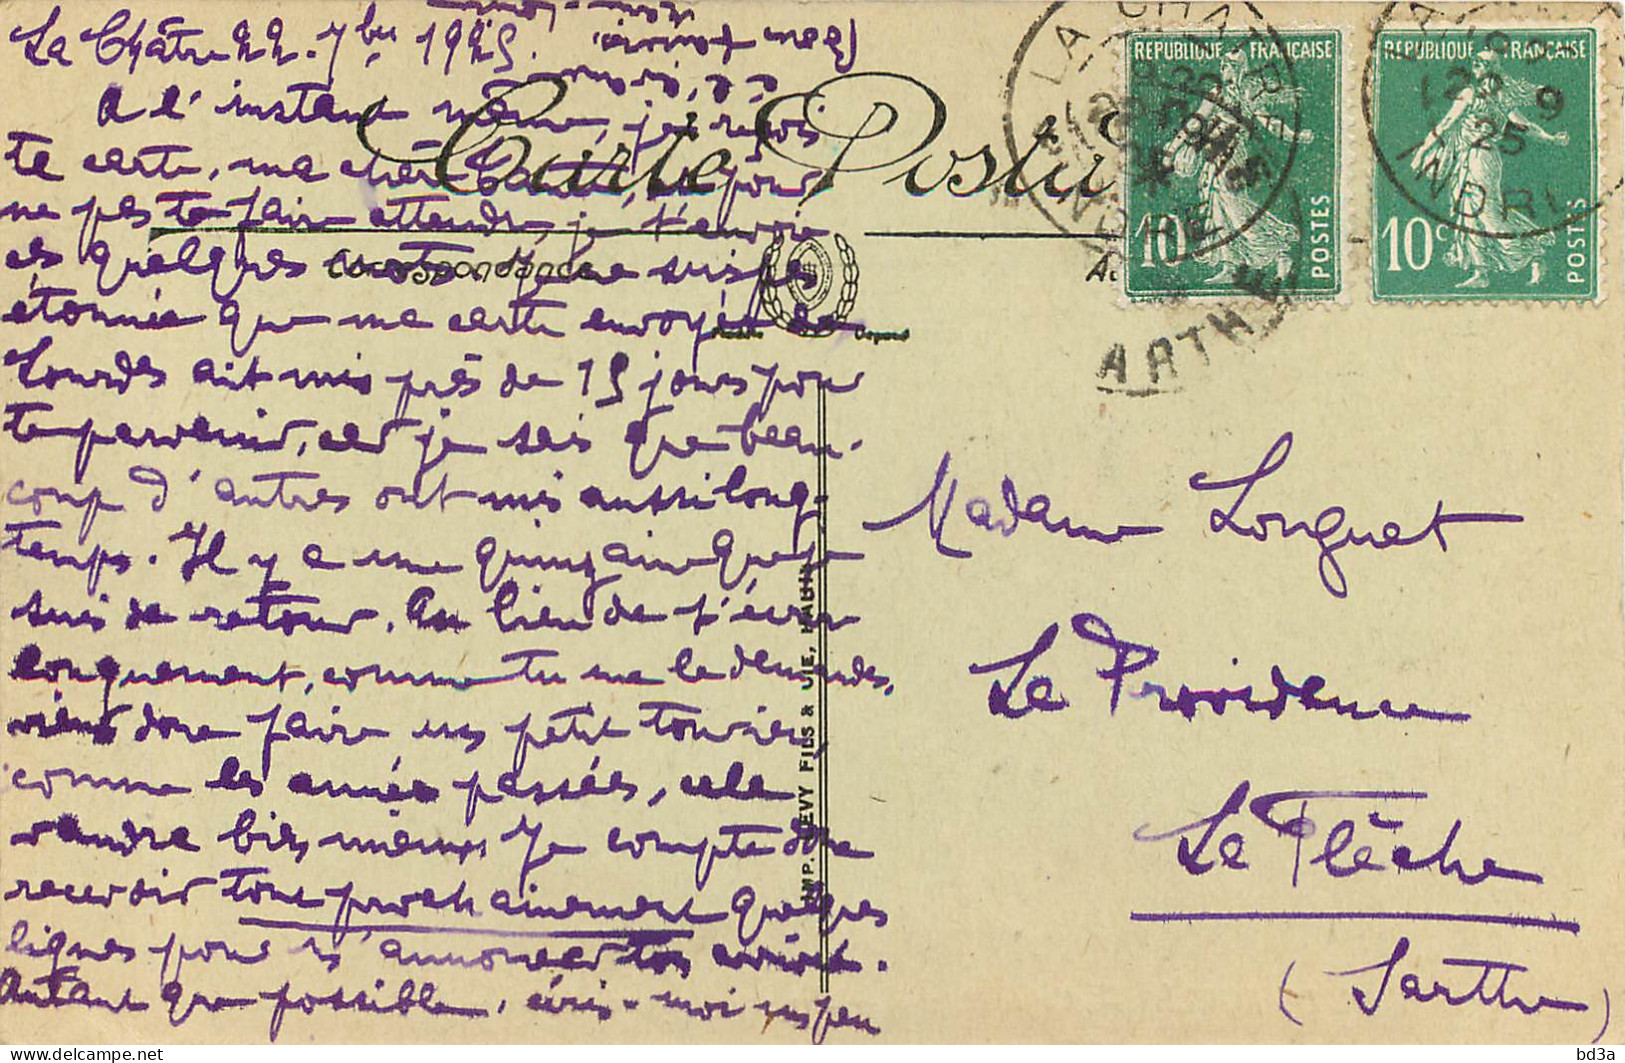 La Châtre 22. 7bre 1925.
A l'instant même, je reçois
ta carte, ma chère et pour
ne pas te faire attendre, je t'envoie
ces quelques mots. Je ne suis pas
étonnée que ma carte envoyée de
Lourdes ait mis près de 15 jours pour
te parvenir, car je sais que beau-
coup d'autres ont mis aussi long-
temps. Il y a une quinzaine que je
suis de retour. Au lieu de t'écrire
longuement, comme tu me le demandes,
viens donc faire un petit tour ici,
comme les années passées, cela
vaudra bien mieux. Je compte donc
recevoir tout prochainement quelques
lignes pour m'annoncer ton arrivée.
Autant que possible, écris-moi un peu
Carte Postale
Correspondance
IMP. LEVY FILS & CIE, PARIS
REPUBLIQUE FRANÇAISE
10c
POSTES
REPUBLIQUE FRANÇAISE
10c
POSTES
LA CHATRE
INDRE
22 9
25
INDRE
Madame Longuet
La Providence
La Flèche
(Sarthe)
bd3a